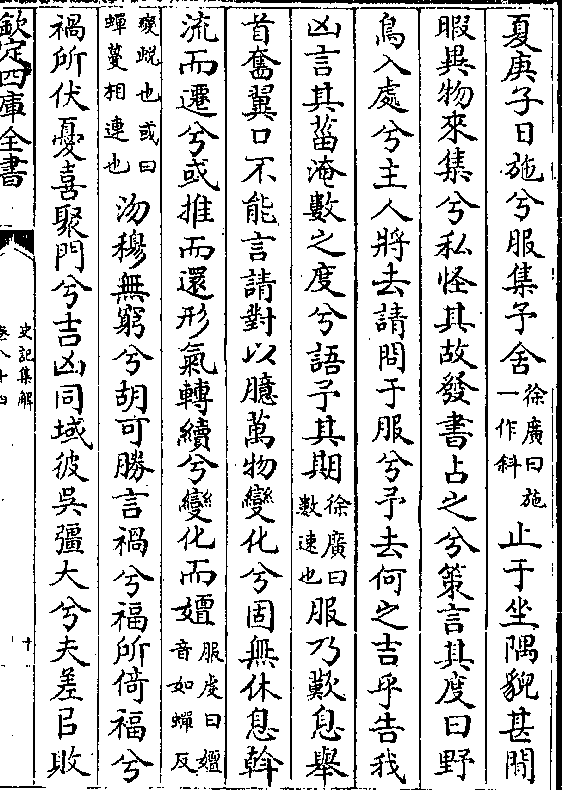 夏庚子日施兮服集予舍徐廣曰施一作斜止于坐隅貌甚閒
暇異物來集兮私怪其故發書占之兮策言其度曰野
鳥入處兮主人將去請問于服兮予去何之吉乎告我
凶言其菑淹數之度兮語予其期徐廣曰數速也服乃歎息舉
首奮翼口不能言請對以臆萬物變化兮固無休息斡
流而遷兮或推而還形氣轉續兮變化而嬗服虔曰嬗音如蟬反
變蛻也或曰蟬蔓相連也沕穆無窮兮胡可勝言禍兮福所倚福兮
禍所伏憂喜聚門兮吉凶同域彼吳彊大兮夫差以敗
欽定四庫全書
史記集解
卷八十四
十